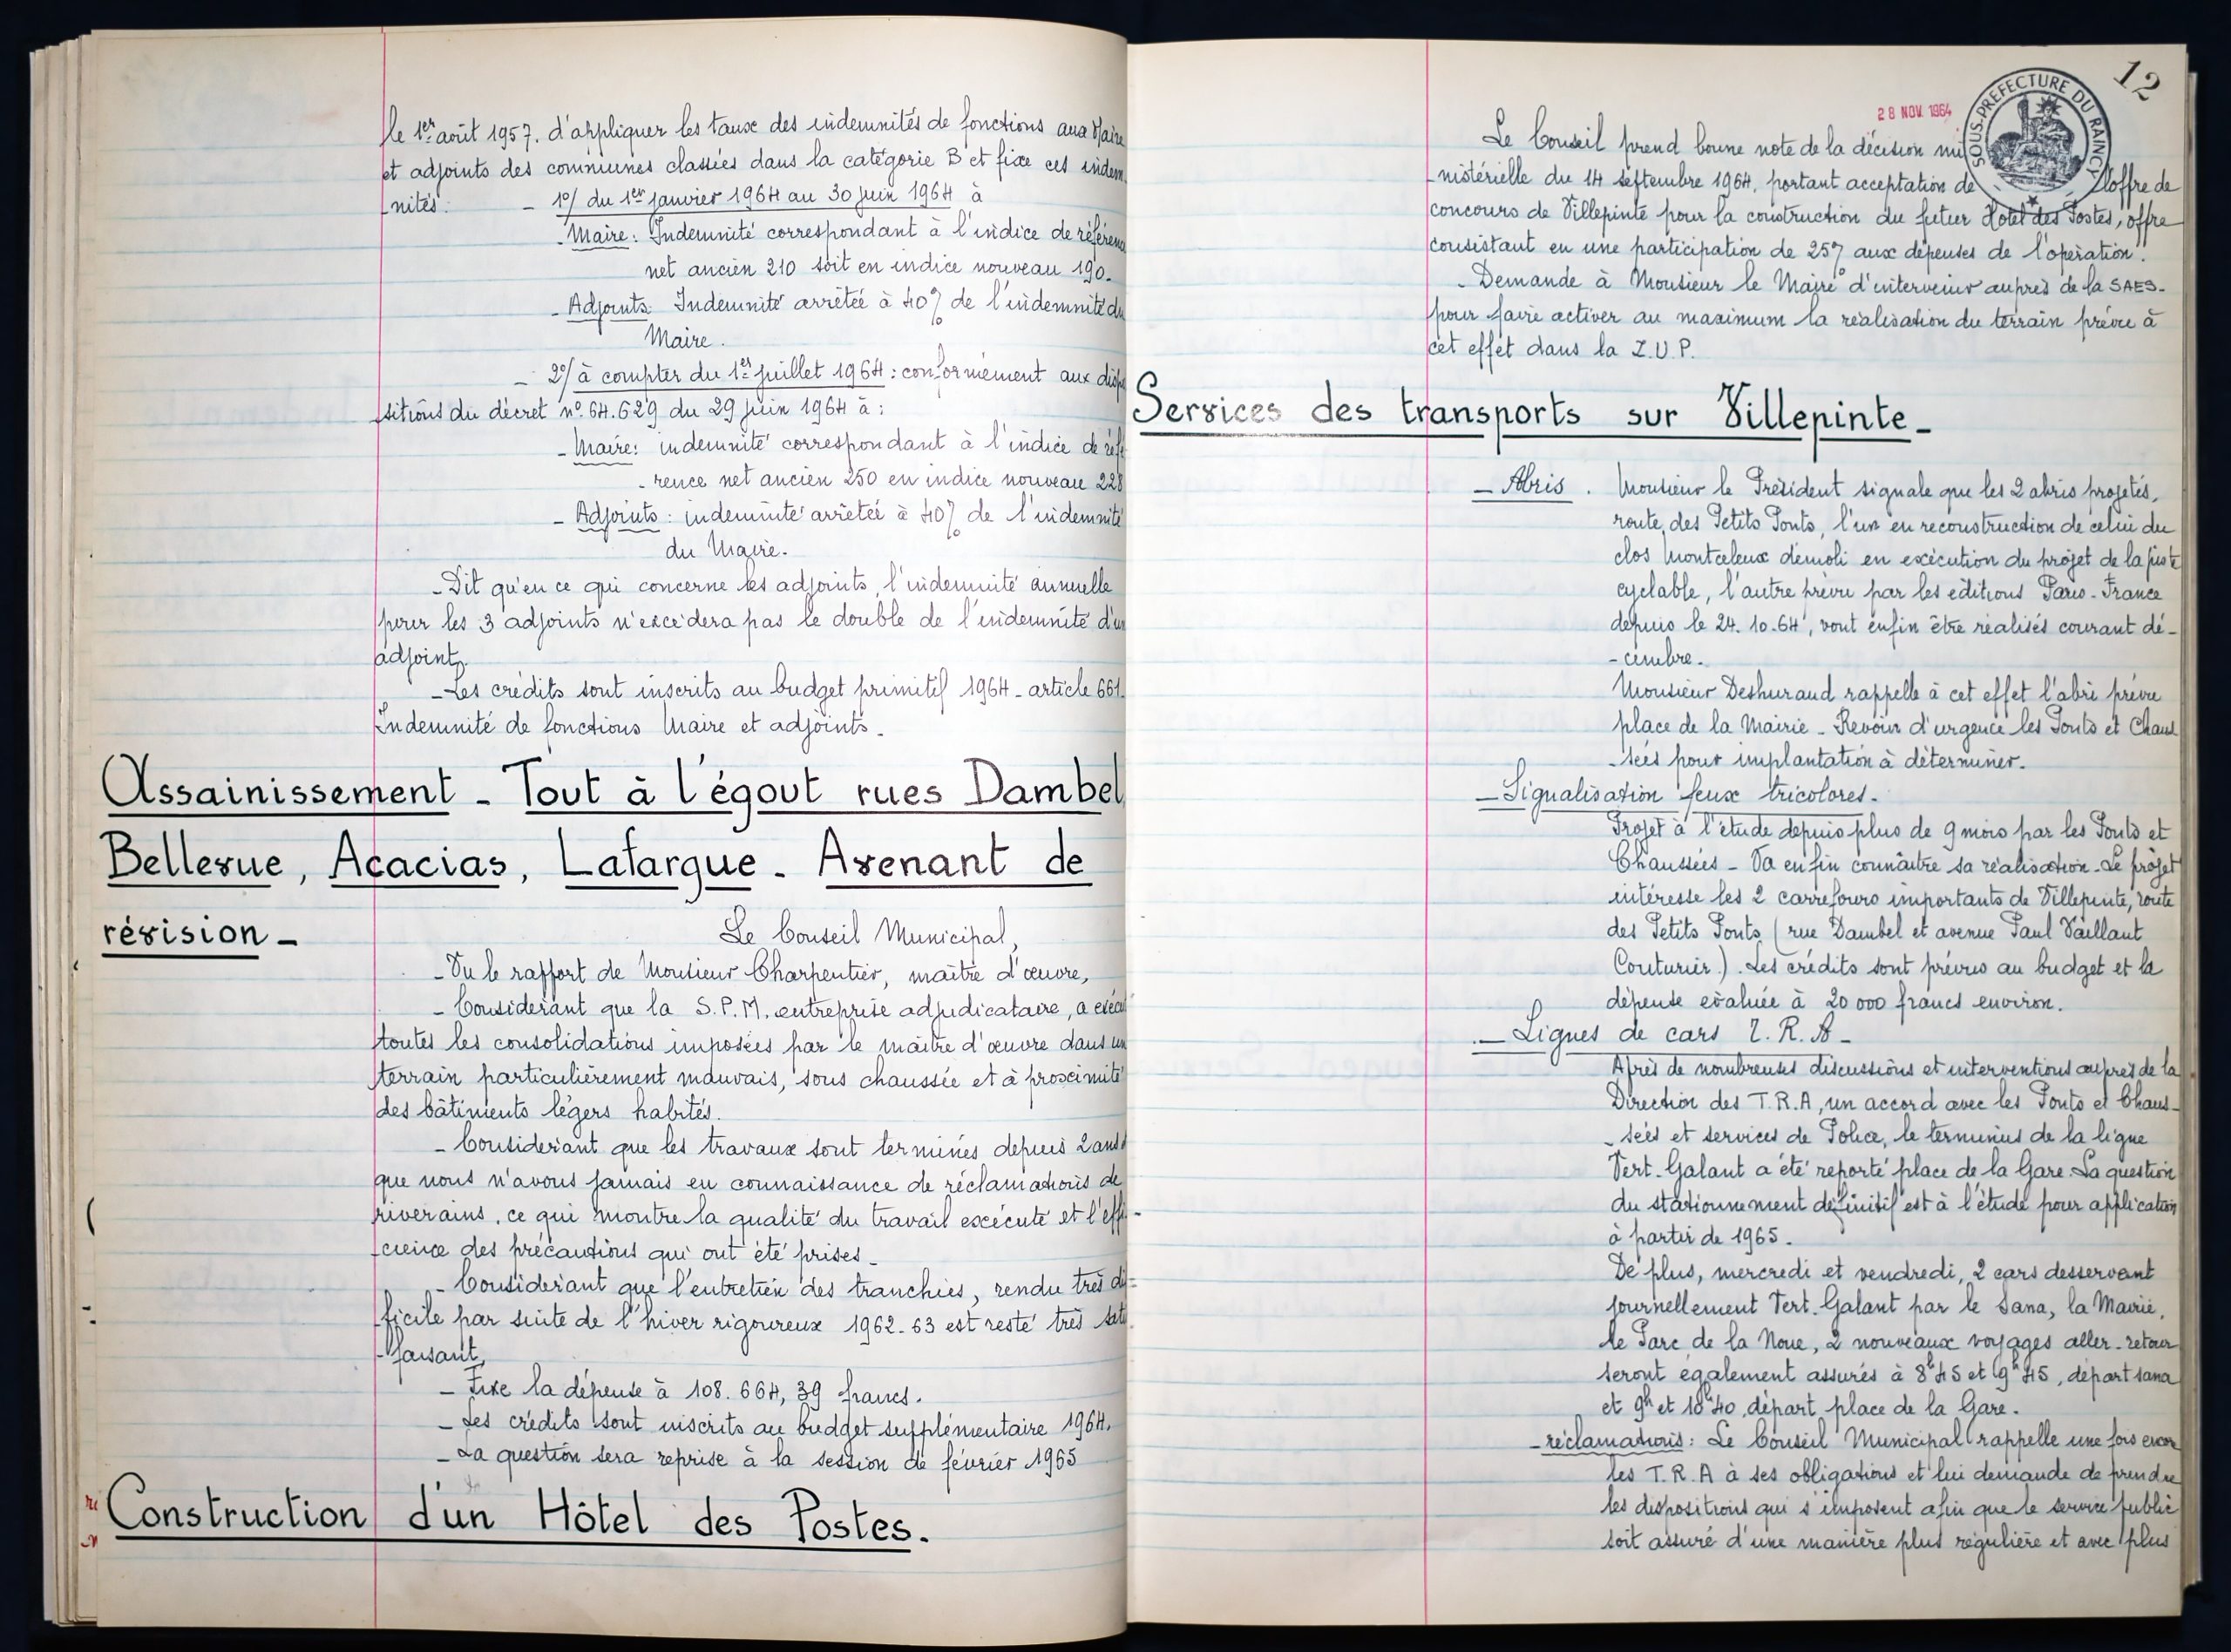 le 1er août 1957. d'appliquer les taux des indemnités de fonctions aux Maire
et adjoints des communes classées dans la catégorie B et fixe ces indem
-nités :      - 1°/ du 1er janvier 1964 au 30 juin 1964 à
- Maire : Indemnité correspondant à l'indice de référence
net ancien 210 soit en indice nouveau 190.
- Adjoints : Indemnité arrêtée à 40% de l'indemnité du
Maire.
- 2°/ à compter du 1er juillet 1964 : conformément aux dispo
sitions du décret n°. 64.629 du 29 juin 1964 à :
- Maire : indemnité correspondant à l'indice de réfé
- rence net ancien 250 en indice nouveau 228
- Adjoints : indemnité arrêtée à 40% de l'indemnité
du Maire.
- Dit qu'en ce qui concerne les adjoints, l'indemnité annuelle
pour les 3 adjoints n'excèdera pas le double de l'indemnité d'un
adjoint.
- Les crédits sont inscrits au budget primitif 1964 - article 661.
Indemnité de fonctions Maire et adjoints.
Assainissement - Tout à l'égout rues Dambel
Bellevue, Acacias, Lafargue - Avenant de
révision -
Le Conseil Municipal,
- Vu le rapport de Monsieur Charpentier, maître d'œuvre,
- Considérant que la S.P.M. entreprise adjudicataire, a exécu
toutes les consolidations imposées par le maître d'œuvre dans un
terrain particulièrement mauvais, sous chaussée et à proximité
des bâtiments légers habités.
- Considérant que les travaux sont terminés depuis 2 ans
que nous n'avons jamais eu connaissance de réclamations de
riverains, ce qui montre la qualité du travail exécuté et l'effi-
-cience des précautions qui ont été prises -
- Considérant que l'entretien des tranchées, rendu très dif-
ficile par suite de l'hiver rigoureux 1962-63 est resté très satis
-faisant,
- Fixe la dépense à 108.664,39 francs.
- Les crédits sont inscrits au budget supplémentaire 1964.
- La question sera reprise à la session de février 1965
Construction d'un Hôtel des Postes.
12
28 NOV. 1964
SOUS-PRÉFECTURE DU RAINCY
Le Conseil prend bonne note de la décision mi
-nistérielle du 14 septembre 1964, portant acceptation de l'offre de
concours de Villepinte pour la construction du futur Hotel des Postes, offre
consistant en une participation de 25% aux dépenses de l'opération.
- Demande à Monsieur le Maire d'intervenir auprès de la SAES-
pour faire activer au maximum la réalisation du terrain prévu à
cet effet dans la Z.U.P.
Services des transports sur Villepinte -
- Abris. Monsieur le Président signale que les 2 abris projetés,
route des Petits Ponts, l'un en reconstruction de celui du
clos Montceleux démoli en exécution du projet de la piste
cyclable, l'autre prévu par les éditions Paris-France
depuis le 24.10.64, vont enfin être réalisés courant dé-
-cembre.
Monsieur Deshuraud rappelle à cet effet l'abri prévu
place de la Mairie - Revoir d'urgence les Ponts et Chaus
-sées pour implantation à déterminer.
- Signalisation feux tricolores -
Projet à l'étude depuis plus de 9 mois par les Ponts et
Chaussées - Va enfin connaître sa réalisation. Le projet
intéresse les 2 carrefours importants de Villepinte, route
des Petits Ponts (rue Dambel et avenue Paul Vaillant
Couturier). Les crédits sont prévus au budget et la
dépense évaluée à 20 000 francs environ.
- Lignes de cars T.R.A -
Après de nombreuses discussions et interventions auprès de la
Direction des T.R.A, un accord avec les Ponts et Chaus-
-sées et services de Police, le terminus de la ligne
Vert-Galant a été reporté place de la Gare. La question
du stationnement définitif est à l'étude pour application
à partir de 1965.
De plus, mercredi et vendredi, 2 cars desservant
journellement Vert-Galant par le Sana, la Mairie,
le Parc de la Noue, 2 nouveaux voyages aller-retour
seront également assurés à 8h45 et 9h45, départ sana
et 9h et 10h40, départ place de la Gare.
- réclamations : Le Conseil Municipal rappelle une fois encor
les T.R.A à ses obligations et lui demande de prendre
les dispositions qui s'imposent afin que le service public
soit assuré d'une manière plus régulière et avec plus